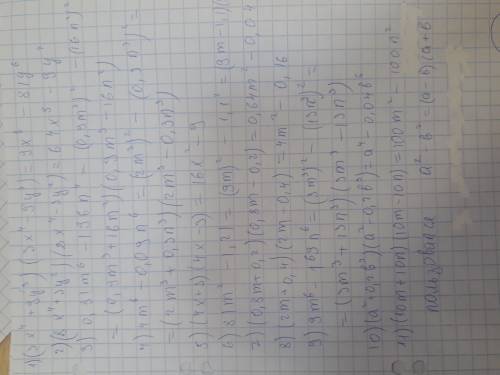 1) (3x⁴+9y³)(3x⁴-9y³)=9x⁸-81y⁶
2) (8x⁴+3y²)(8x⁴-3y²)=64x⁸-9y⁴
3) 0,9m⁶-196n⁴ = (0,3m³)²-(16n²)²
=(0,3m³+16n²)(0,3m³-16n²)
4) 4m⁶-0,09n⁶=(2m³)²-(0,3n³)²=
=(2m³+0,3n³)(2m³-0,3n³)
5) (4x+3)(4x-3)=16x²-9
6) 81m²-1,21=(9m)²-1,1²=(9m-1,1)(
7) (0,8m+0,2)(0,8m-0,2)=0,64m²-0,04
8) (2m+0,4)(2m-0,4)=4m²-0,16
9) 9m⁶-169n⁶=(3m³)²-(13n³)²=
=(3m³+13n³)(3m³-13n³)
10) (a²+0,2b³)(a²-0,2b³)=a⁴-0,04b⁶
11) (10m+10n)(10m-10n)=100m²-100n²
a² b²=(a-b)(a+b